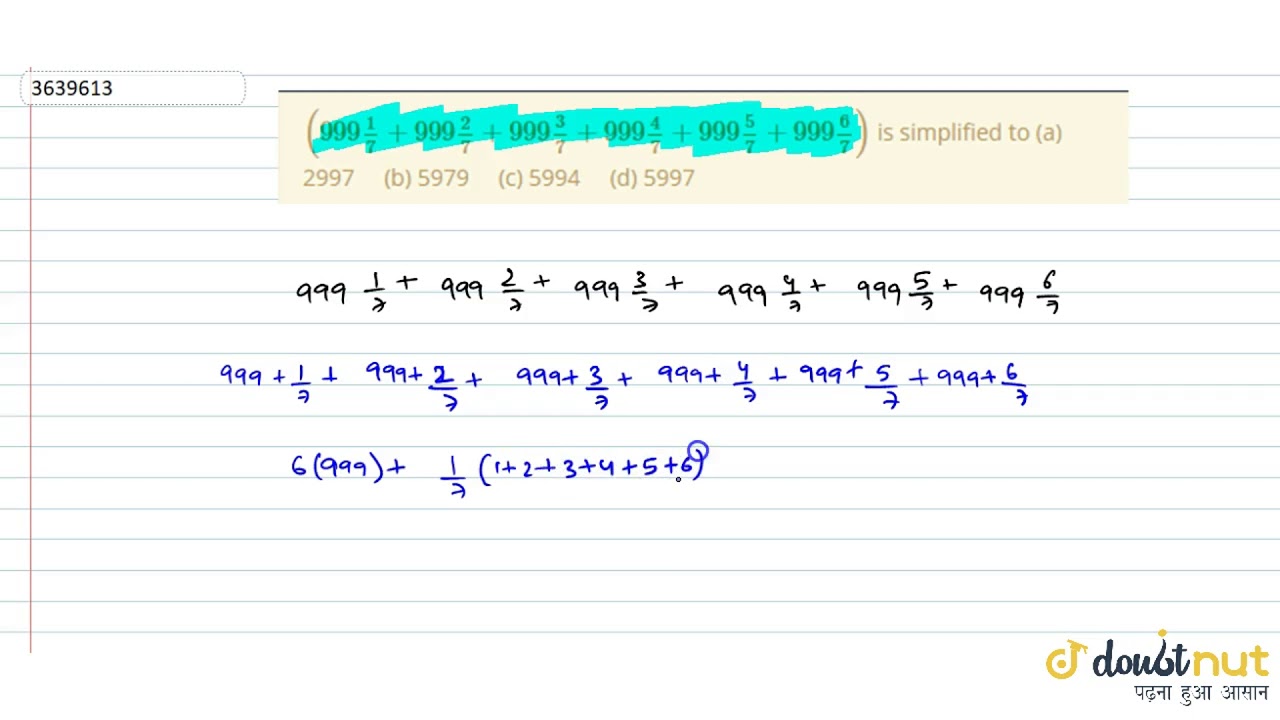 3639613
(999 1/7 + 999 2/7 + 999 3/7 + 999 4/7 + 999 5/7 + 999 6/7) is simplified to (a)
2997 (b) 5979 (c) 5994 (d) 5997
999 1/7 + 999 2/7 + 999 3/7 + 999 4/7 + 999 5/7 + 999 6/7
999 + 1/7 + 999 + 2/7 + 999 + 3/7 + 999 + 4/7 + 999 + 5/7 + 999 + 6/7
6(999) + 1/7 (1+2+3+4+5+6)
doubtnut
पढ़ना हुआ आसान